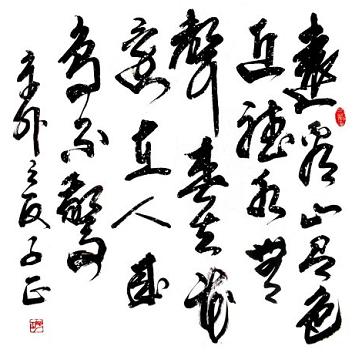 遠看山有色
近聽水無
聲春去花
還在人來
鳥不驚
子正